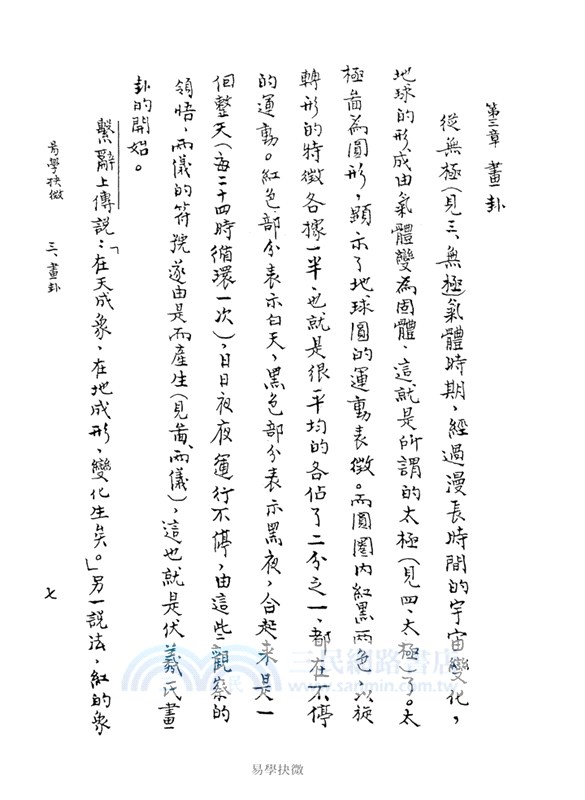 第三章 畫卦
從無極(見三、無極)氣體時期,經過漫長時間的宇宙變化,
地球的形成由氣體變為固體,這就是所謂的太極(見四、太極)了。太
極啚為圓形,顯示了地球圓的運動表徵。而圓圈內紅黑兩色以旋
轉形的特徵各據一半,也就是很平均的各佔了二分之一,都在不停
的運動。紅色部分表示白天,黑色部分表示黑夜,合起來是一
個整天(每二十四時循環一次),日日夜夜運行不停,由這些觀察的
領悟,兩儀的符號遂由是而產生(見啚、兩儀),這也就是伏羲氏畫
卦的開始。
繫辭上傳說:「在天成象,在地成形,變化生矣。」另一說法,紅的象
易學抉微 三、畫卦 七
三民網路書店
www.sanmin.com.tw
易學抉微